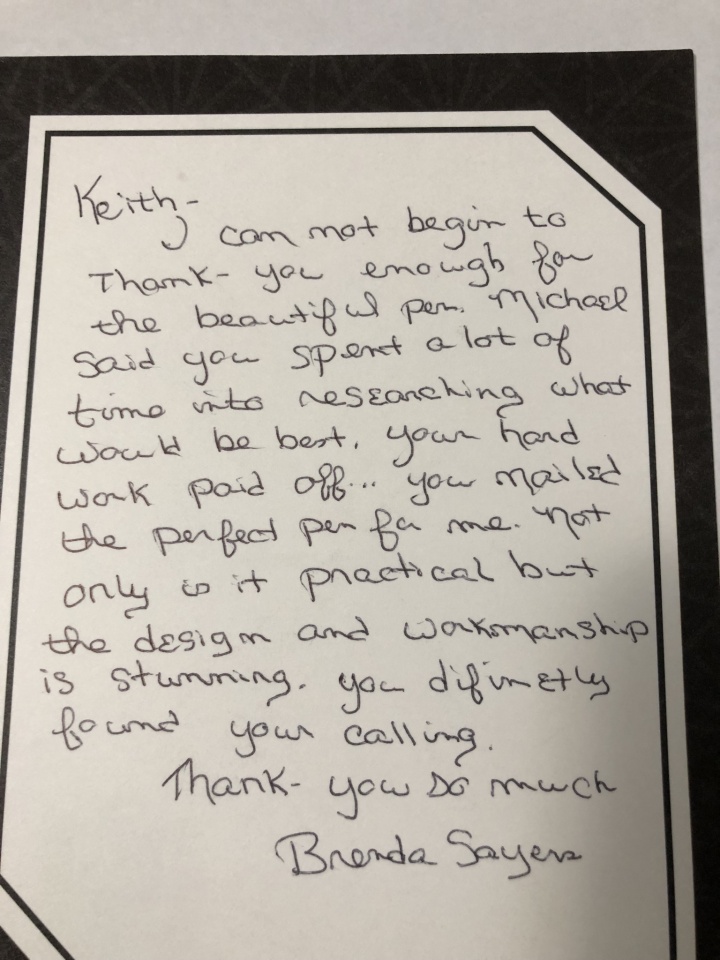 Keith-
I can not begin to
Thank-you enough for
the beautiful pen. Michael
Said you spent a lot of
time into researching what
would be best. your hard
work paid off... you nailed
the perfect pen for me. not
only is it practical but
the design and workmanship
is stunning. you difinetly
found your calling.
Thank-you so much
Brenda Sayers